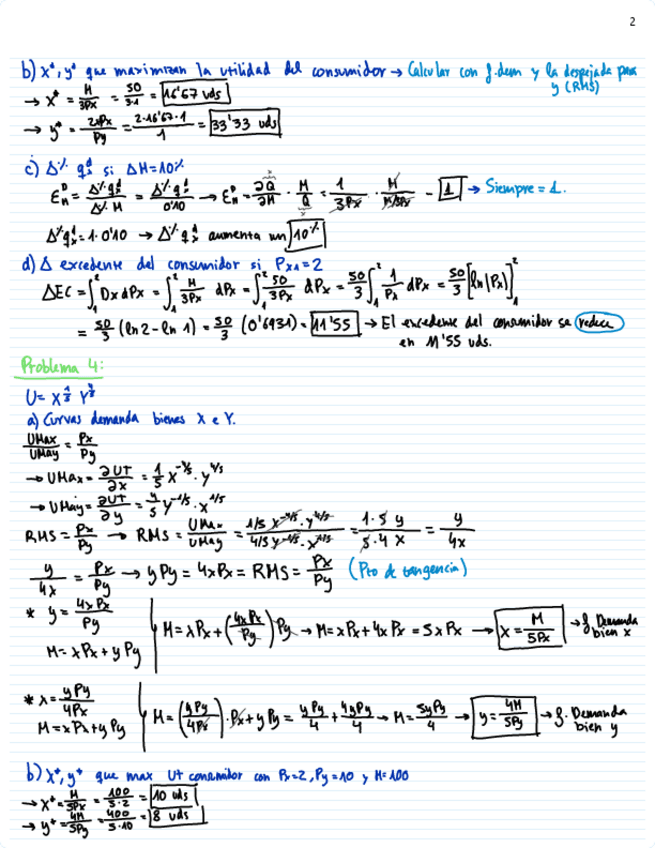 2
b) x*, y* que maximizan la utilidad del consumidor → Calcular con f.dem y la despejada para y (RMS)
→ x* = M/3Px = 50/3·1 = 16'67 uds
→ y* = 2xPx/Py = 2·16'67·1/1 = 33'33 uds
c) Δ% qxd si ΔM=10%
EMD = Δ% qxd/Δ% M = Δ% qxd/0'10 → EMD = ∂Q/∂M · M/Q = 1/3Px · M/M/3Px = 1 → Siempre = 1.
Δ%qxd = 1·0'10 → Δ% qxd aumenta un 10%
d) Δ excedente del consumidor si Px1=2
ΔEC = ∫₁² Dx dPx = ∫₁² M/3Px dPx = ∫₁² 50/3Px dPx = 50/3 ∫₁² 1/Px dPx = 50/3 [ln|Px|]₁²
= 50/3 (ln 2 - ln 1) = 50/3 (0'6931) = 11'55 → El excedente del consumidor se reduce
en 11'55 uds.
Problema 4:
U= X^1/5 Y^4/5
a) Curvas demanda bienes X e Y.
UMax/UMay = Px/Py
→ UMax = ∂UT/∂x = 1/5 x^-4/5 · y^4/5
→ UMay = ∂UT/∂y = 4/5 y^-1/5 · x^1/5
RMS = Px/Py → RMS = UMax/UMay = 1/5 x^-4/5 · y^4/5 / 4/5 y^-1/5 · x^1/5 = 1·5 y/5·4 x = y/4x
y/4x = Px/Py → yPy = 4xPx = RMS = Px/Py (Pto de tangencia)
* y = 4xPx/Py
M = xPx + yPy
M = xPx + (4xPx/Py)Py → M = xPx + 4xPx = 5xPx → x = M/5Px → f Demanda bien x
* x = yPy/4Px
M = xPx + yPy
M = (yPy/4Px)·Px + yPy = yPy/4 + 4yPy/4 → M = 5yPy/4 → y = 4M/5Py → f. Demanda bien y
b) x*, y* que max Ut consumidor con Px=2, Py=10 y M=100
→ x* = M/5Px = 100/5·2 = 10 uds
→ y* = 4M/5Py = 400/5·10 = 8 uds